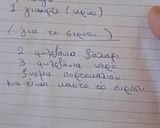 1 γιαούρτι (κρύο)
(για το σιρόπι)
2 φλιτζάνια ζάχαρη
3 φλιτζάνια νερό
ξύσμα πορτοκαλιού
να είναι καυτό το σιρόπι